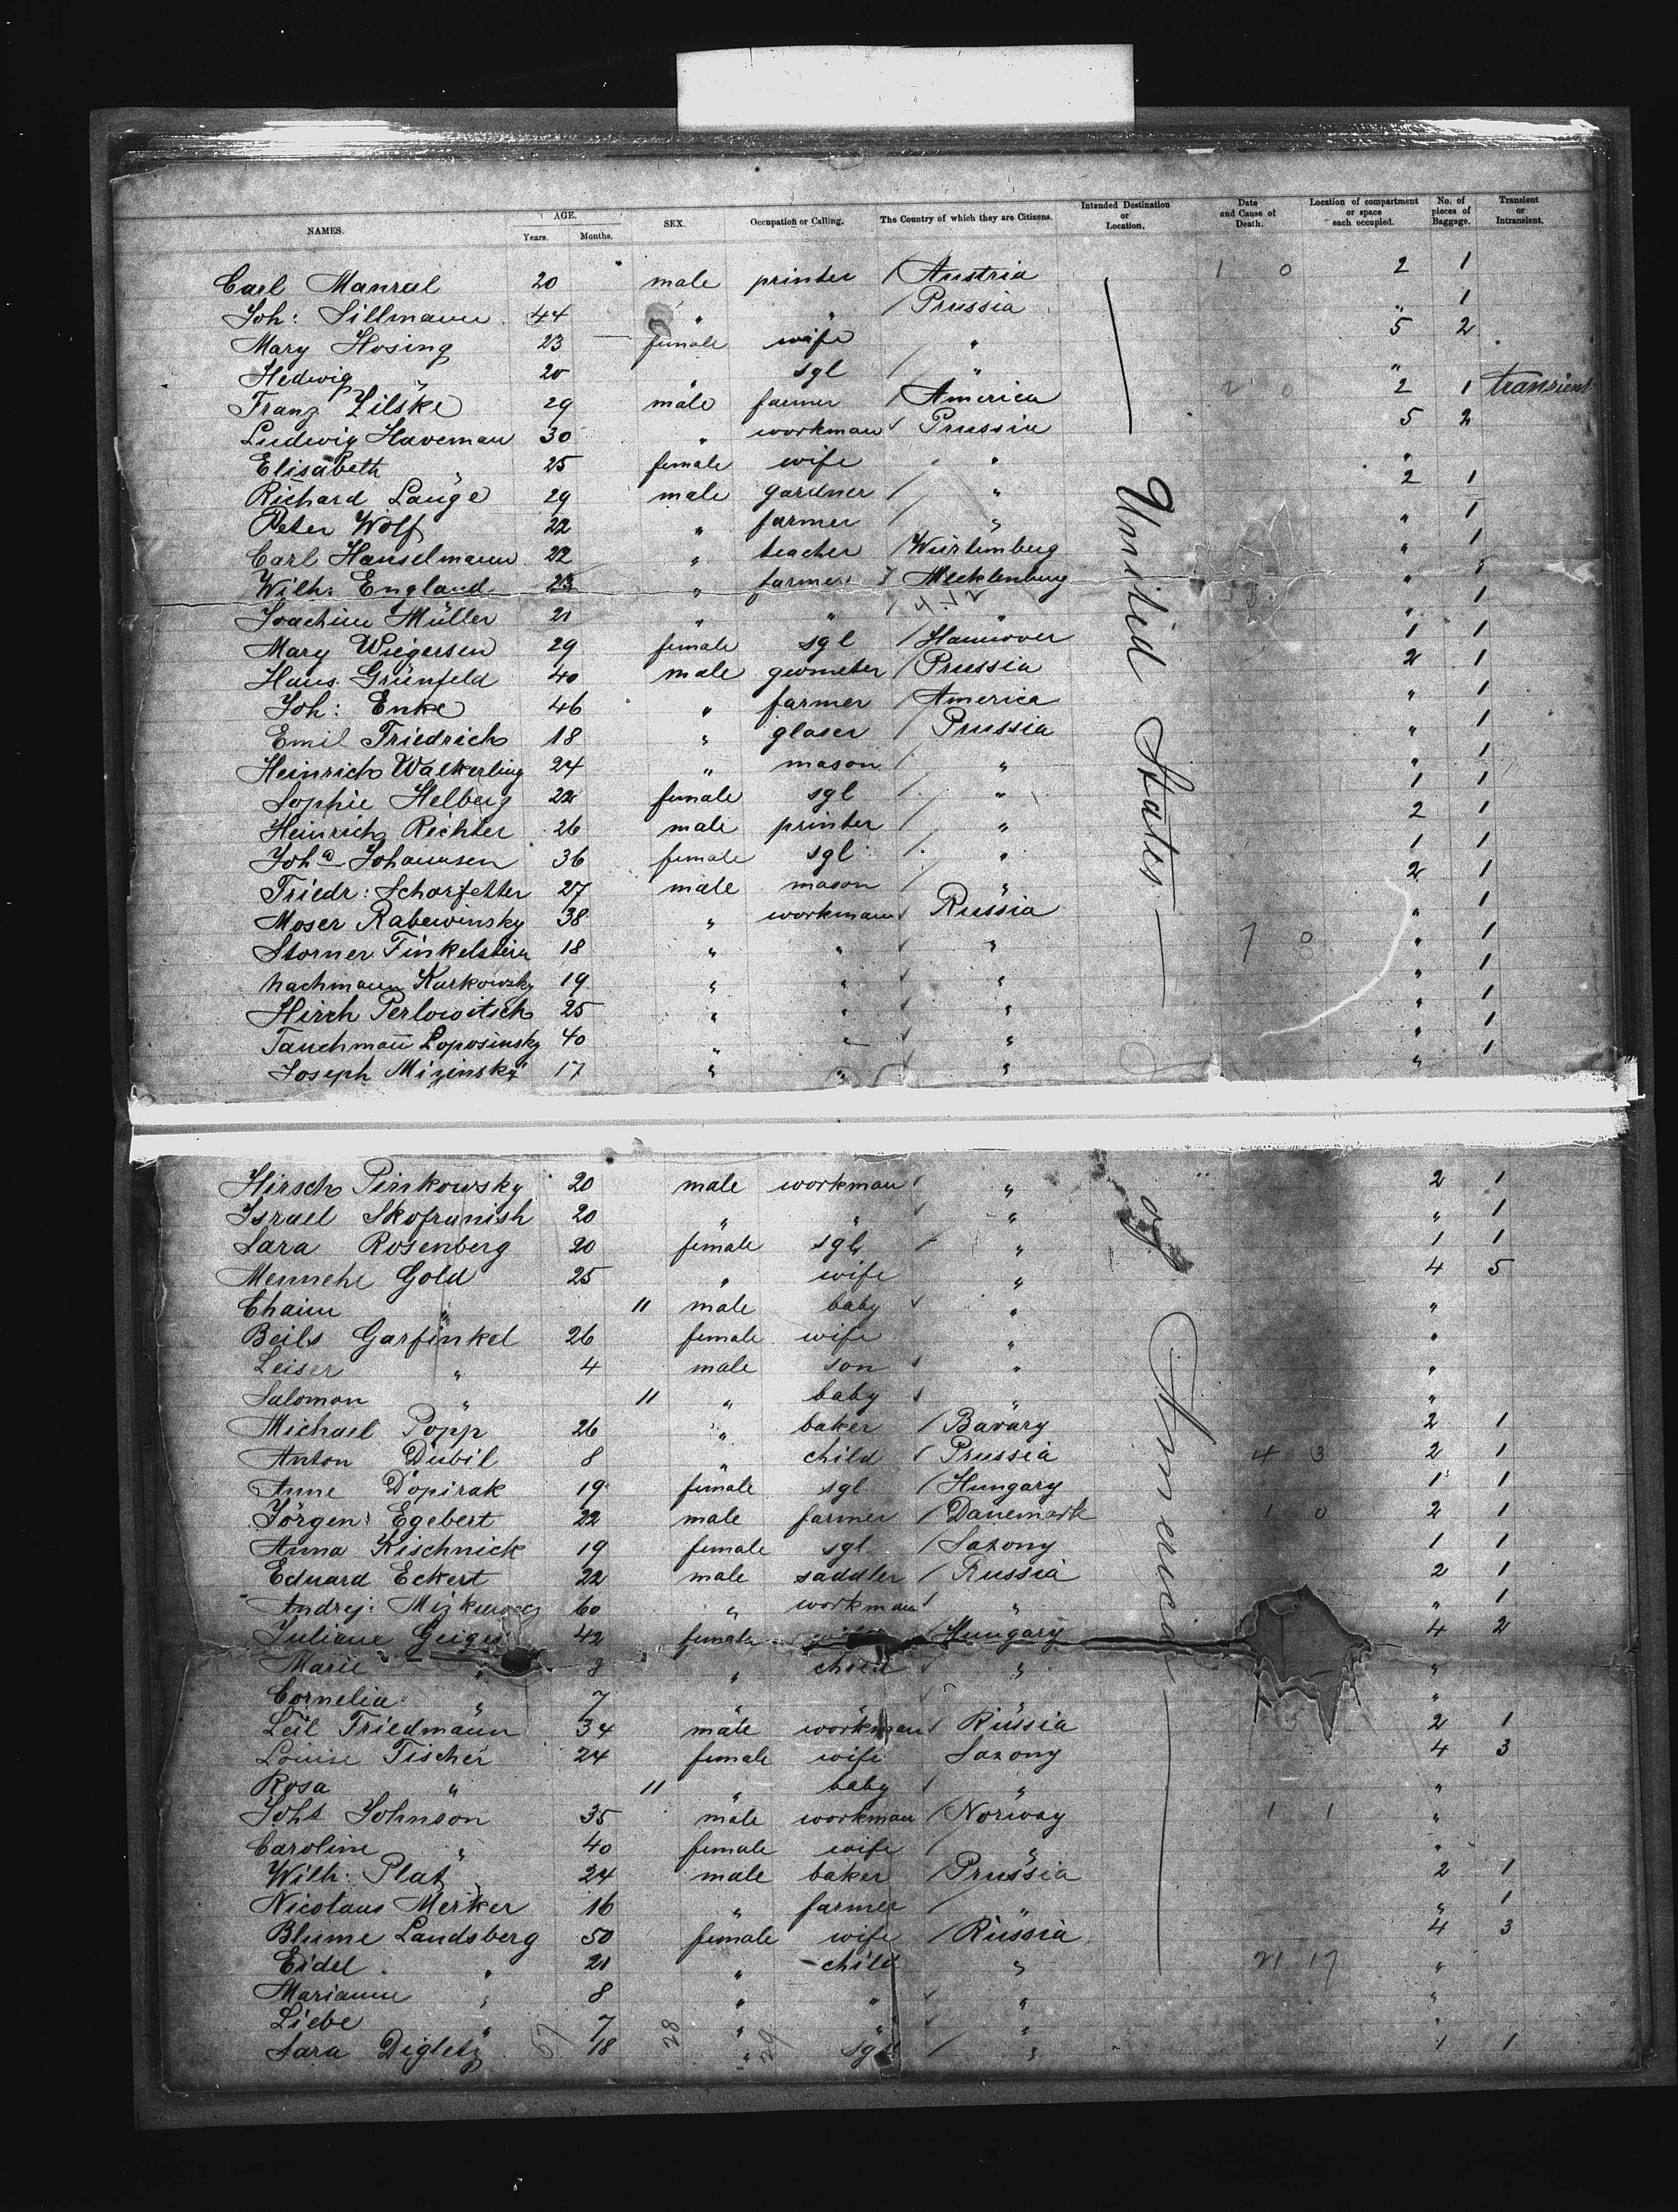 NAMES. AGE. Years. Months. SEX. Occupation or Calling. The Country of which they are Citizens. Intended Destination or Location. Date and Cause of Death. Location of compartment or space each occupied. No. of pieces of Baggage. Transient or Intransient.
Carl 20 male printer / Austria 1 0 2 1
Joh: Sillmann 44 " " / Prussia " 1
Mary Hosing 23 female wife " 5 2
Hedwig " 20 " sgl / " "
Franz Zilske 29 male farmer / America 2 0 2 1 transient
Ludwig Haveman 30 " workman ✓ Prussia 5 2
Elisabeth " 25 female wife " "
Richard Lange 29 male gardner / " 2 1
Peter Wolf 22 " farmer / " " 1
Carl Hanselmann 22 " teacher / Würtemberg " 1
Wilh: England 23 " farmer / Mecklenburg " 1
Joachim Müller 21 " " / " " 1
Mary Wiegersen 29 female sgl / Hannover 1 1
Hans Grünfeld 40 male geometer / Prussia 2 1
Joh: Enke 46 " farmer / America " 1
Emil Friedrich 18 " glaser / Prussia " 1
Heinrich Walkerling 24 " mason / " " 1
Sophie Helberg 22 female sgl / " 1 1
Heinrich Richter 26 male printer / " 2 1
Joha Johannsen 36 female sgl / " 1 1
Friedr: Scharfetter 27 male mason / " 2 1
Moser Rabewinsky 38 " workman ✓ Russia " 1
Storner Finkelstein 18 " " ✓ " 7 0 " 1
Nachmann Karkowsky 19 " " ✓ " " 1
Hirch Perlowitsch 25 " " ✓ " " 1
Tauchmann Loposinsky 40 " " ✓ " " 1
Joseph Mizinsky 17 " " ✓ " " 1
— United States —
Hirsch Pinkowsky 20 male workman ✓ " " 2 1
Israel Skofranish 20 " " ✓ " " 1
Sara Rosenberg 20 female sgl / " 1 1
Mennehe Gold 25 " wife " 4 5
Chaim " 11 male baby ✓ " "
Beils Garfinkel 26 female wife " "
Leiser " 4 male son ✓ " "
Salomon " 11 " baby ✓ " "
Michael Popp 26 " baker / Bavary 2 1
Anton Dubil 8 " child ✓ Prussia 4 3 2 1
Anne Dopirak 19 female sgl / Hungary 1 1
Jörgen Egebert 22 male farmer / Danemark 1 0 2 1
Anna Kischnick 19 female sgl / Saxony 1 1
Eduard Eckert 22 male saddler / Russia 2 1
Andrej: 60 " workman ✓ " " 1
Juliane Geiges 42 female / Hungary 4 2
Marie " " child ✓ " "
Cornelia " 7 " " ✓ " "
Leil Friedmann 34 male workman ✓ Russia 2 1
Louise Fischer 24 female wife Saxony 4 3
Rosa " 11 " baby ✓ " "
Johs Johnson 35 male workman / Norway 1 1 "
Caroline " 40 female wife / " "
Wilh: Plat 24 male baker / Prussia 2 1
Nicolaus Merker 16 " farmer / " " 1
Blume Landsberg 50 female wife / Russia 4 3
Eidel " 21 " child " 21 17 "
Marianne " 8 " " ✓ " "
Liebe " 7 " " ✓ " "
Sara 57 18 28 " 29 sgl / " 1 1
of America —